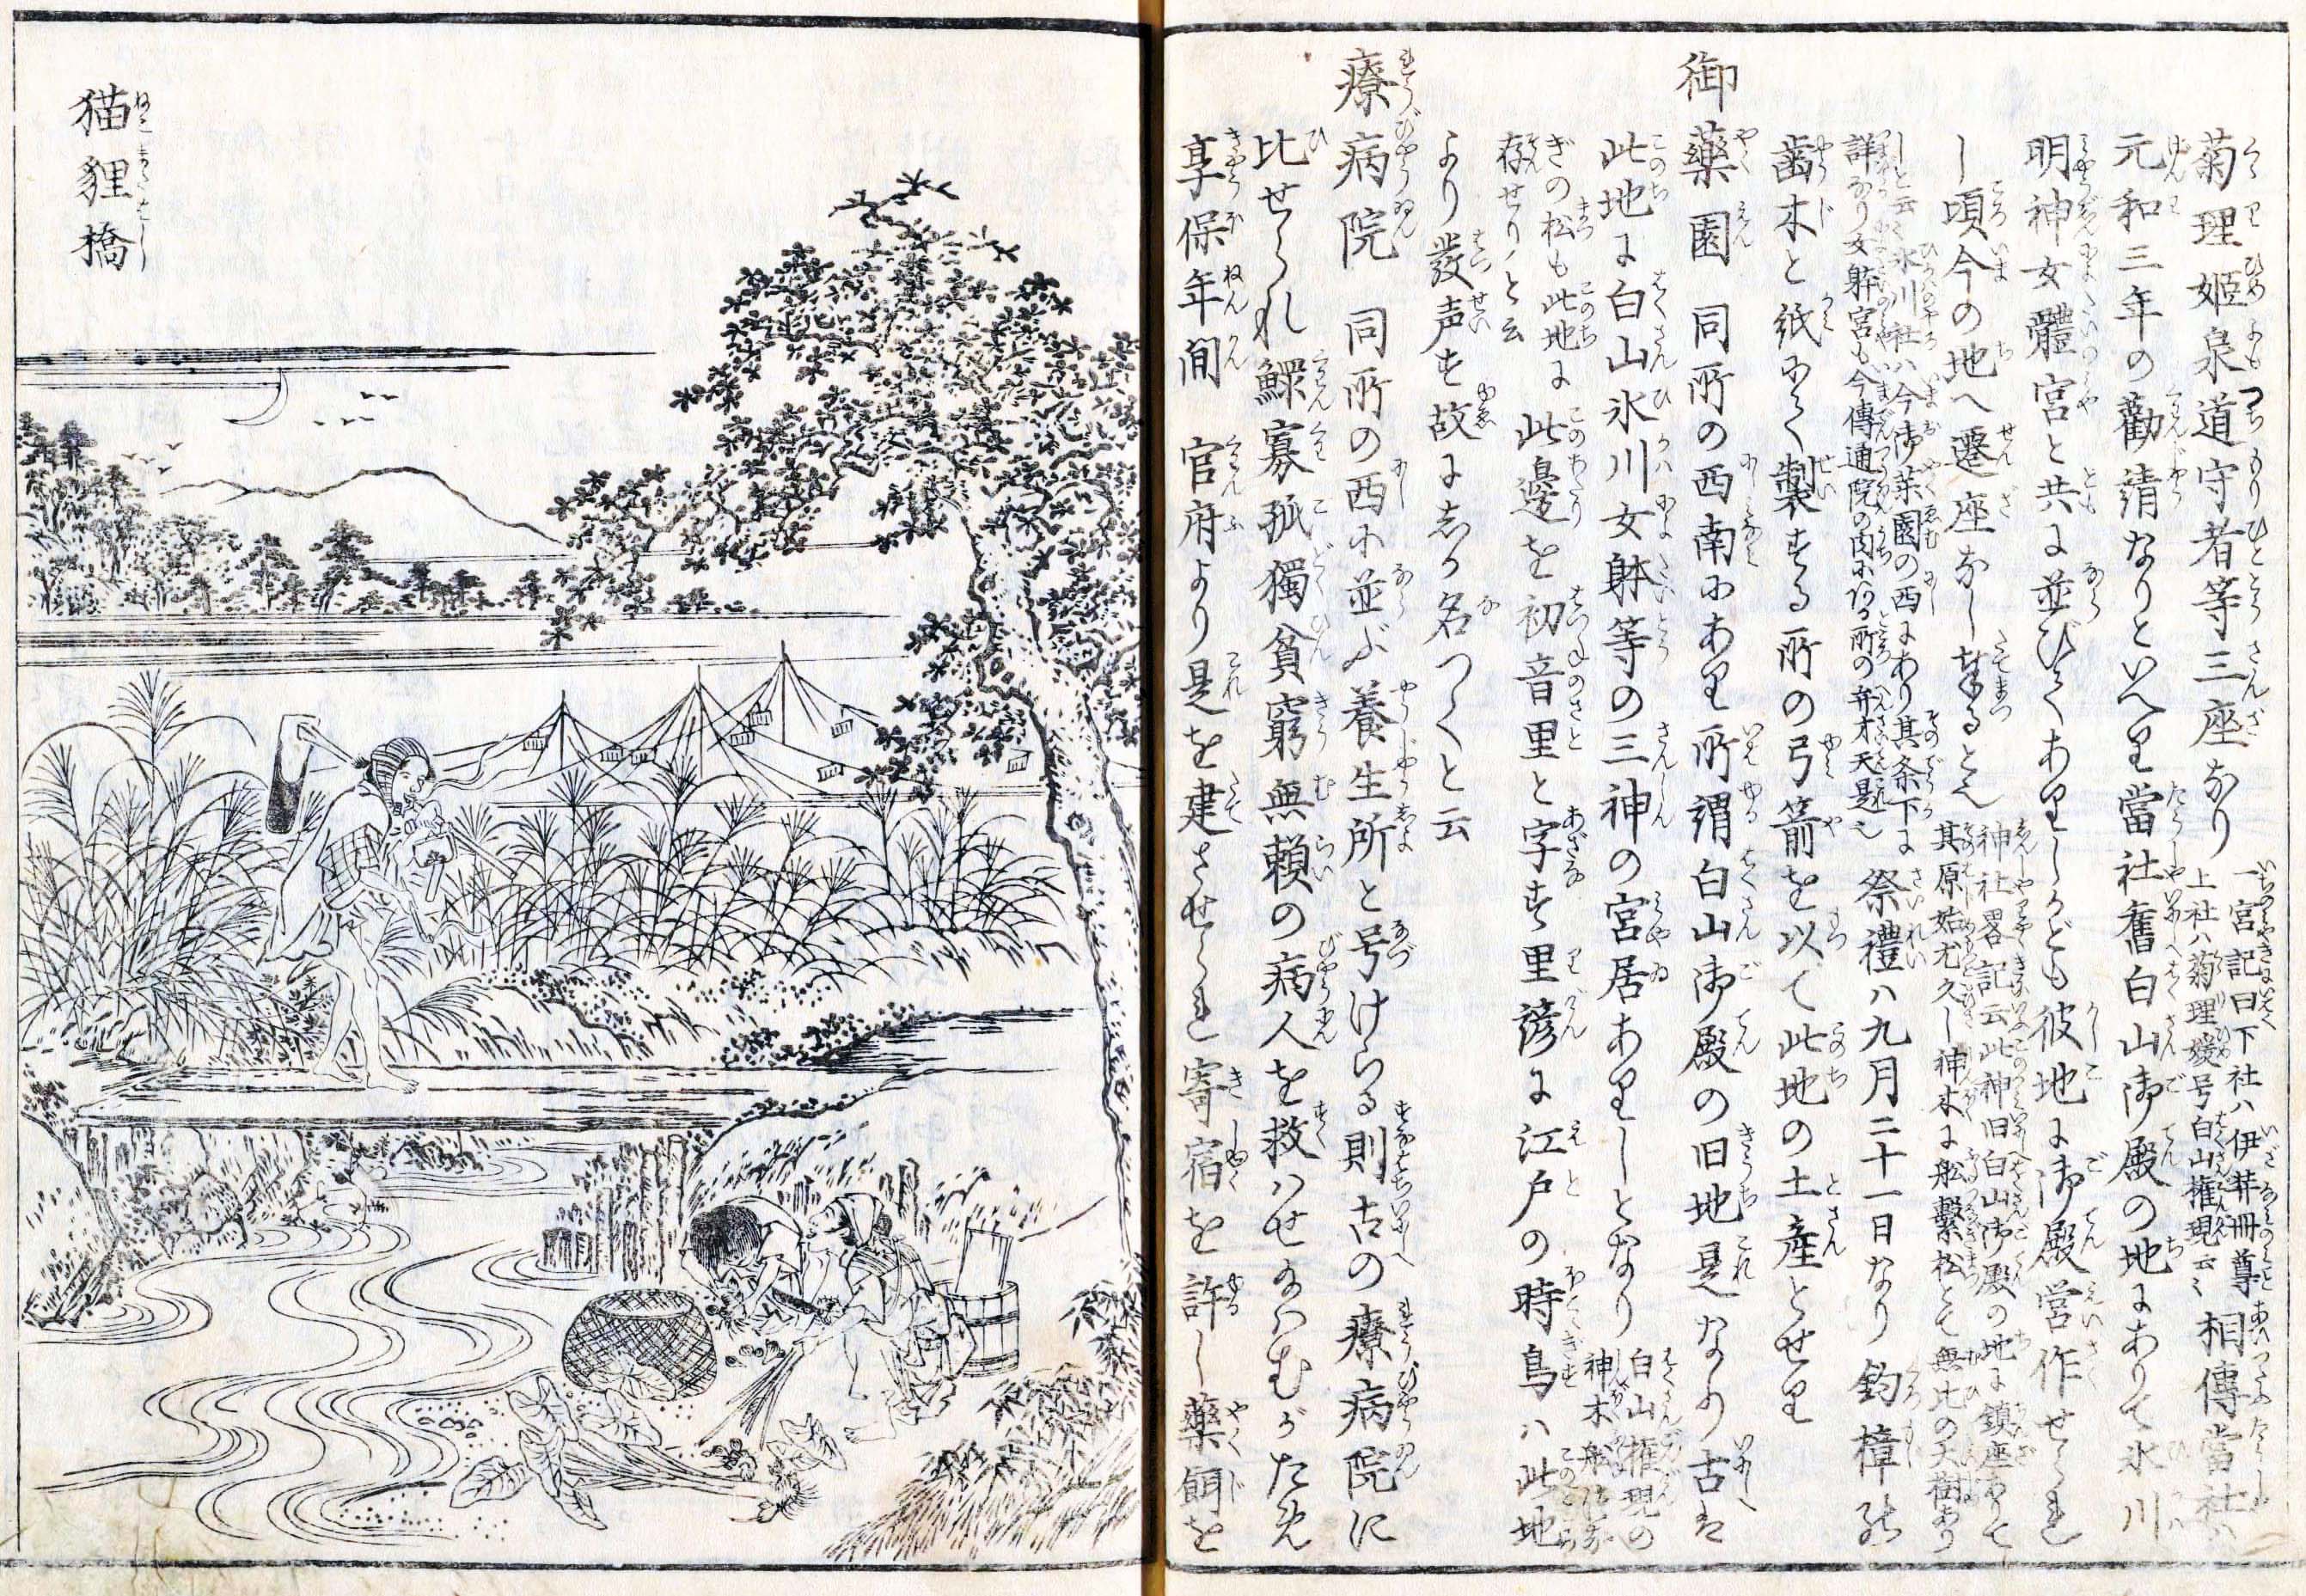 菊理姫泉道守者等三座なり 一宮記曰下社ハ伊弉冊尊 上社ハ菊理媛号白山権現云々 相傳當社ハ
元和三年の勸請なりといへり當社舊白山御殿の地にありて氷川
明神女體宮と共に並びてありしかども彼地に御殿営作せられ
し頃今の地へ遷座なし奉るとぞ 神社畧記云此神旧白山御殿の地に鎮座ありて 其原始尤久し神木に舩繋松とて無比の大樹あり
しと云々氷川社ハ今御薬園の西にあり其条下に 詳なり女躰宮も今傳通院の内にある所の弁才天是也 祭禮ハ九月二十一日なり鈎樟
歯木と紙にて製する所の弓箭を以て此地の土産とせり
御藥園 同所の西南にあり所謂白山御殿の旧地是なり古は
此地に白山氷川女躰等の三神の宮居ありしとなり 白山権現の 神木舩つな
ぎの松も此地に 存せりと云 此邊を初音里と字す里諺に江戸の時鳥ハ此地
より發声す故にしか名つくと云
療病院 同所の西に並ぶ養生所と号けらる則古の療病院に
比せられ鰥寡孤獨貧窮無頼の病人を救ハせ給ハむがため
享保年間 官府より是を建させられ寄宿を許し藥餌を
猫貍橋
ねこまたはし